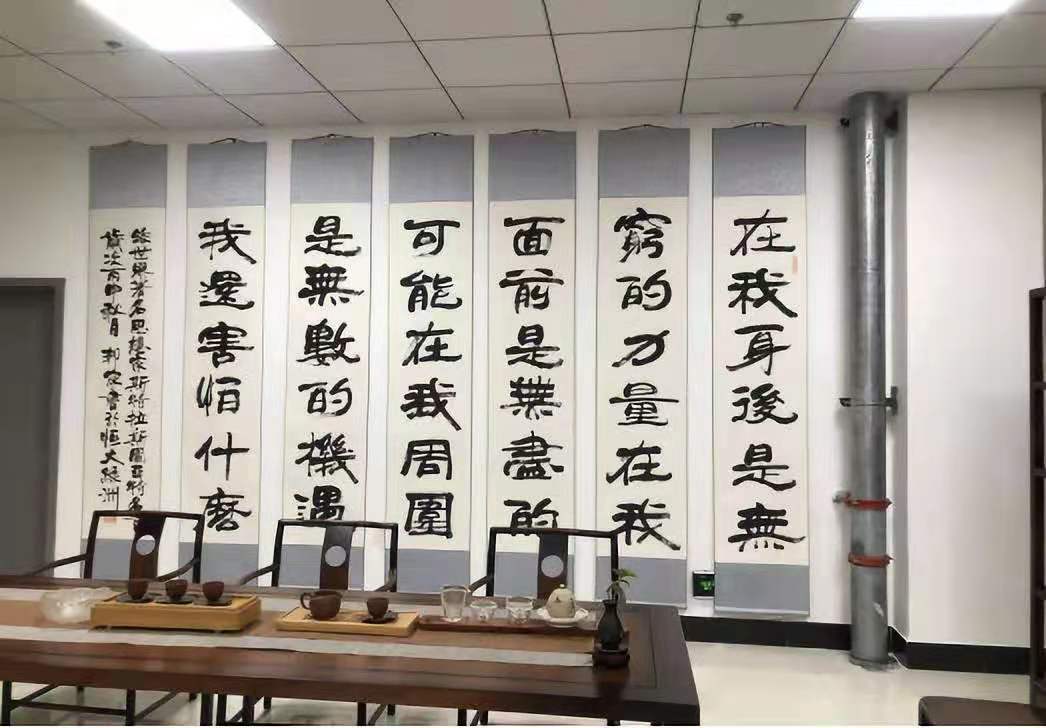 在我身後是無
窮的力量在我
面前是無盡的
可能在我周圍
是無數的機遇
我還害怕什麽
錄世界著名思想家斯特拉斯
歲次丙申秋月 書於恒大綠洲